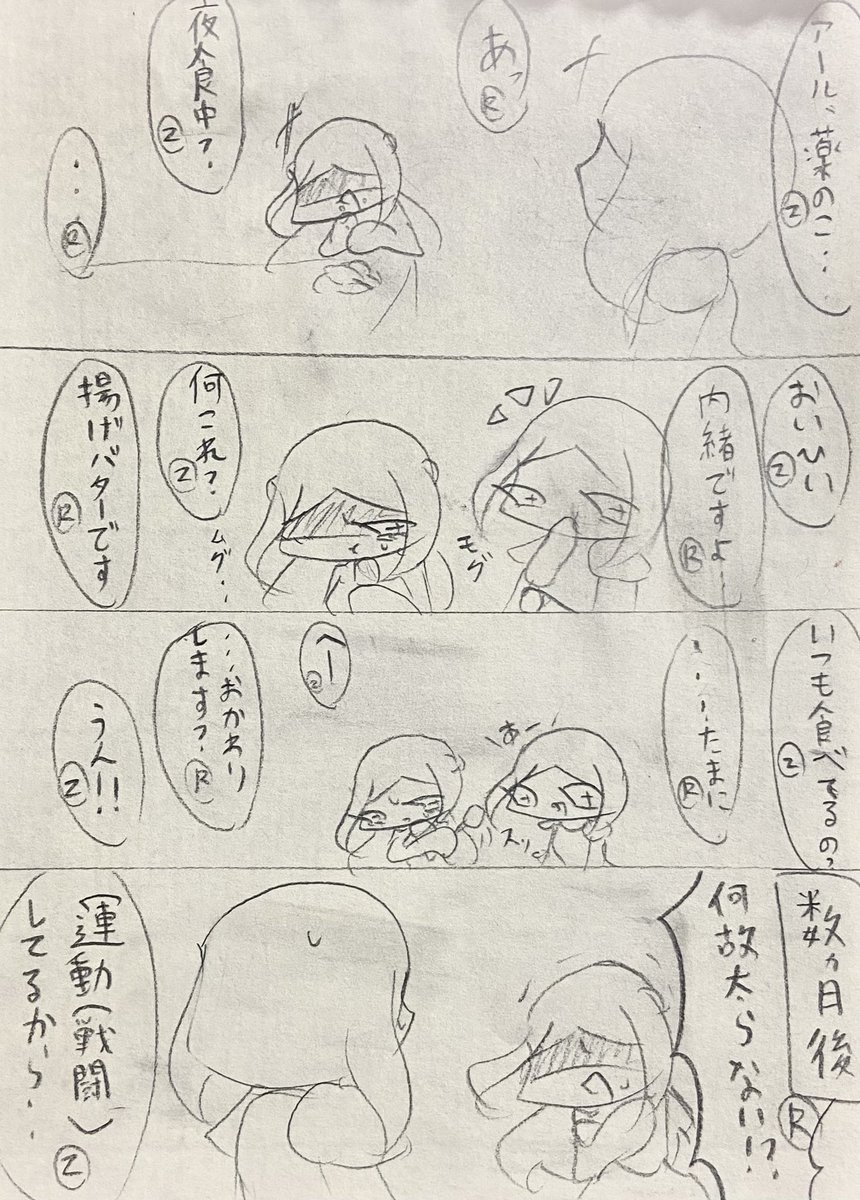 アール、薬のこ・・・
Z
あっ
R
夜食中?
Z
・・・
R
おいひい
Z
内緒ですよー
R
モグ
何これ?
Z
ムグ・・
揚げバターです
R
いつも食べてるの?
Z
・・・・たまに
R
あー
スッ
へー
Z
・・・おかわり
します?
R
うん!!
Z
数ヵ月後
何故太らない!?
R
(運動(戦闘)
してるから・・
Z